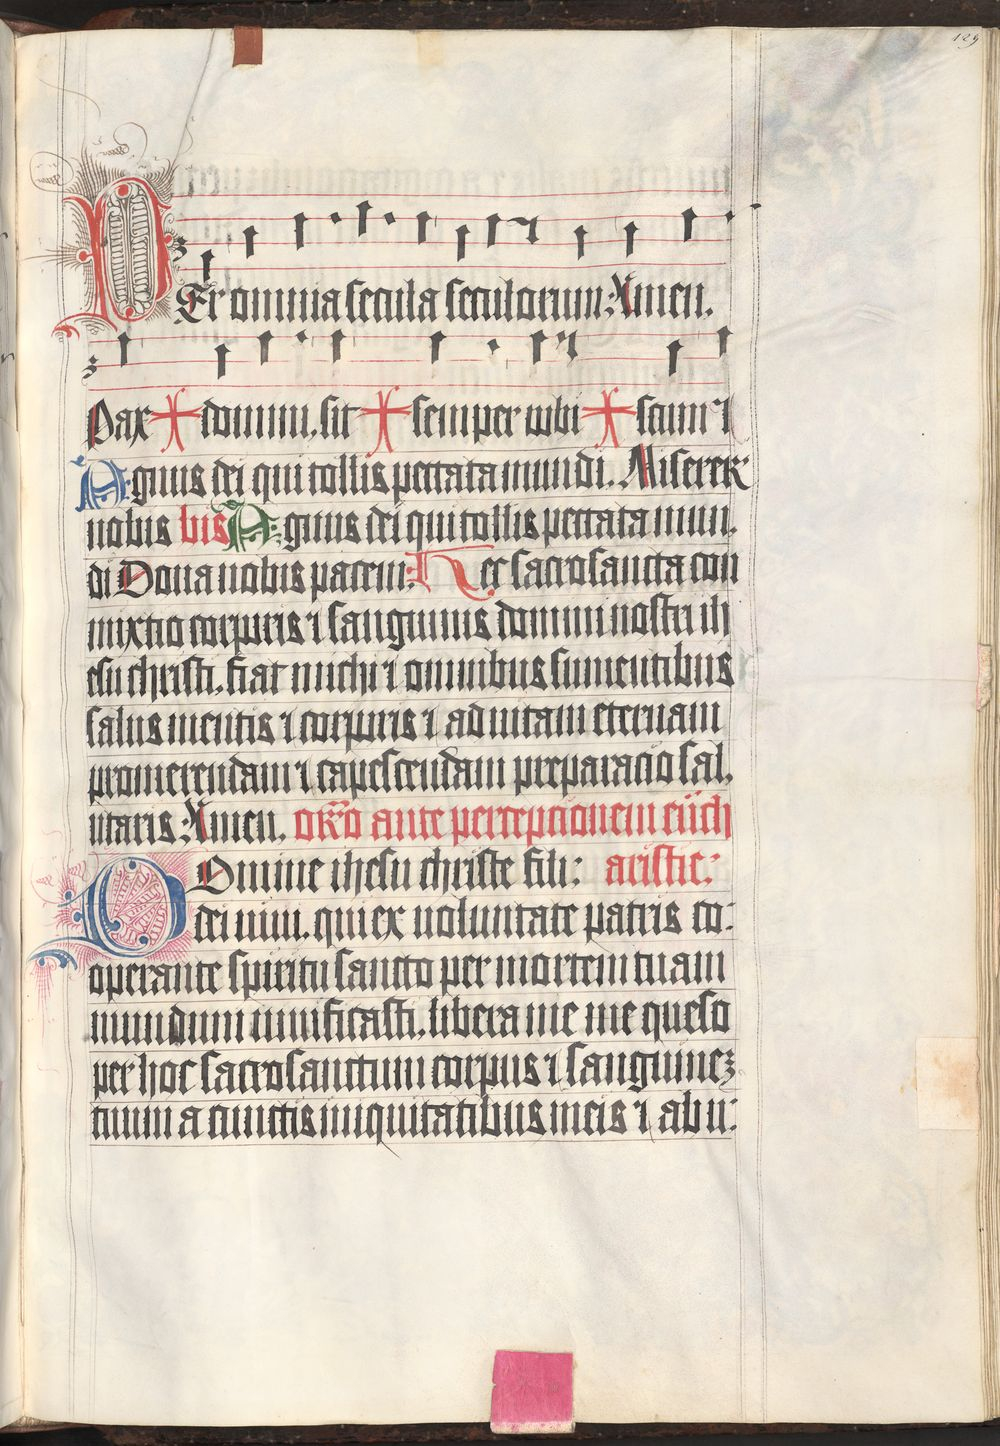 129
PEr omnia secula seculorum: Amen.
Pax + domini. sit + semper vobi + scum ⁊
Agnus dei qui tollis peccata mundi. Miserer̄
nobis bis Agnus dei qui tollis peccata mun,
di Dona nobis pacem: Hec sacrosancta con
mixtio corporis ⁊ sanguinis domini nostri ih
esu christi. fiat michi ⁊ omnibus sumentibus
salus mentis ⁊ corporis ⁊ ad uitam eternam
promerendam ⁊ capescendam preparacio sal,
utaris: Amen. oro ante perceptionem euch
DOmine ihesu christe fili: aristie:
dei uiui. qui ex uoluntate patris co:
operante spiritu sancto per mortem tuam
mundum uiuificasti. libera me me queso
per hoc sacrosanctum corpus ⁊ sanguineꝫ
tuum a cunctis iniquitatibus meis ⁊ ab u: